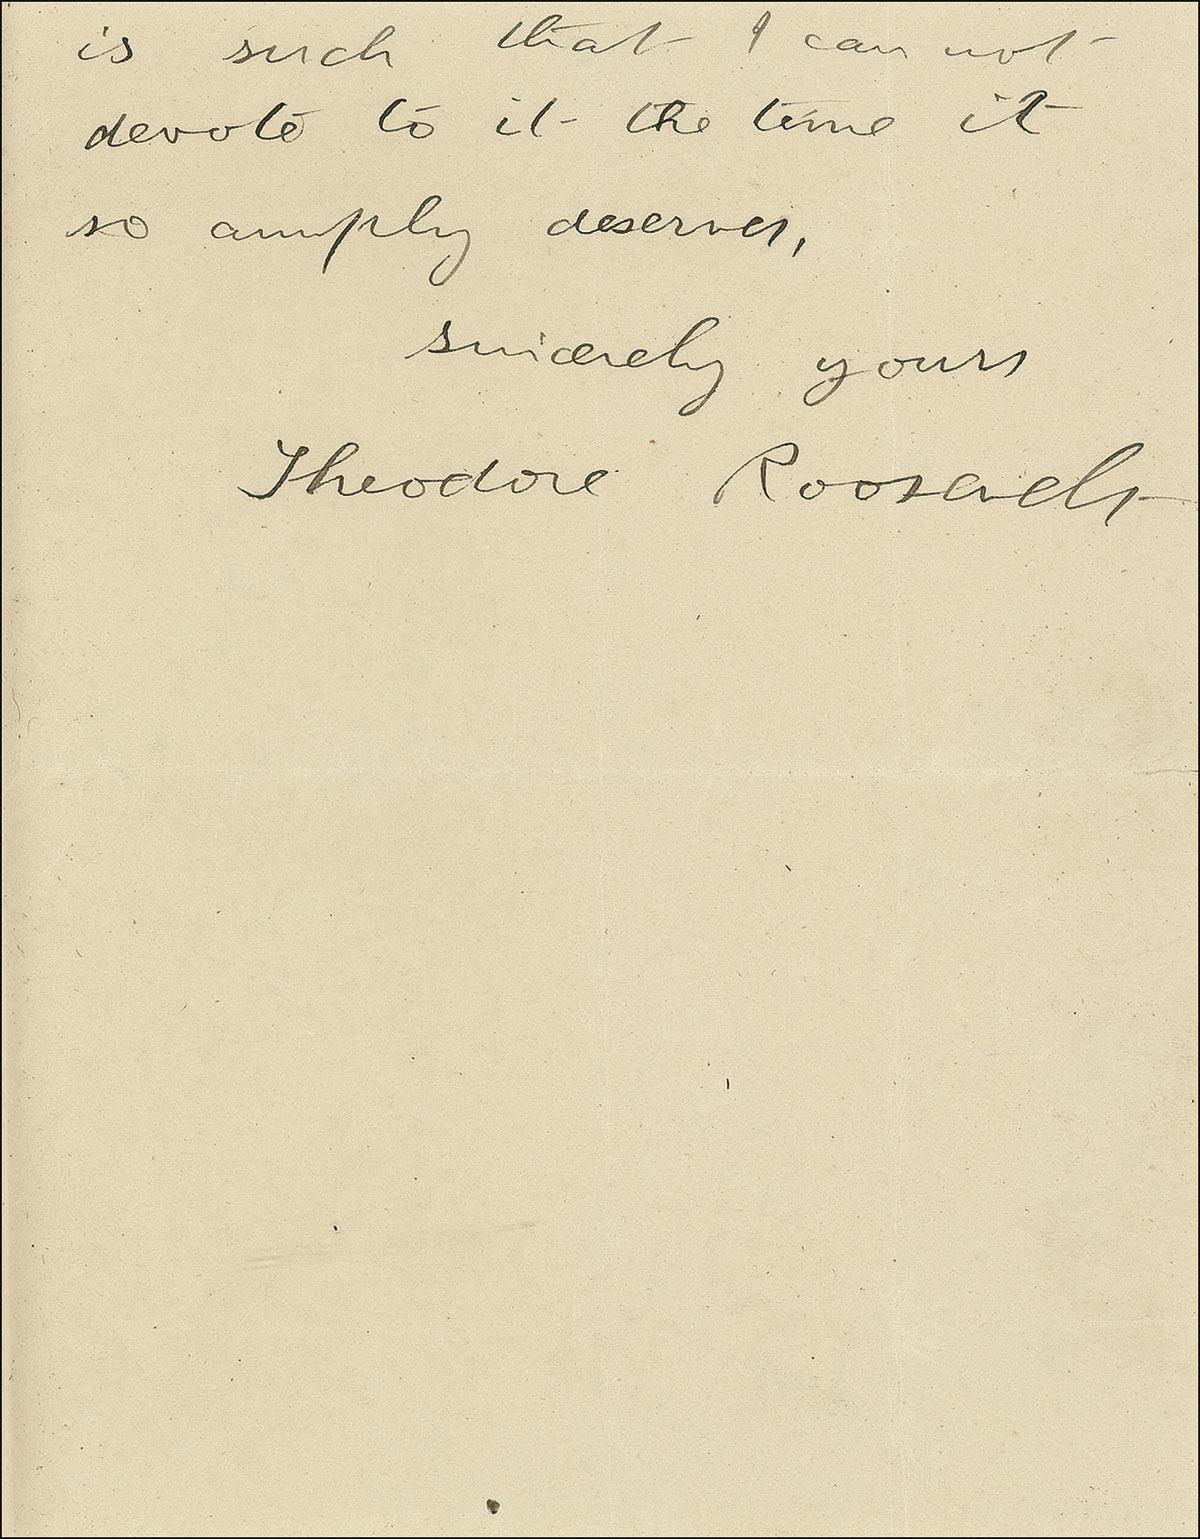 is such that I can not
devote to it the time it
so amply deserves,
sincerely yours
Theodore Roosevelt